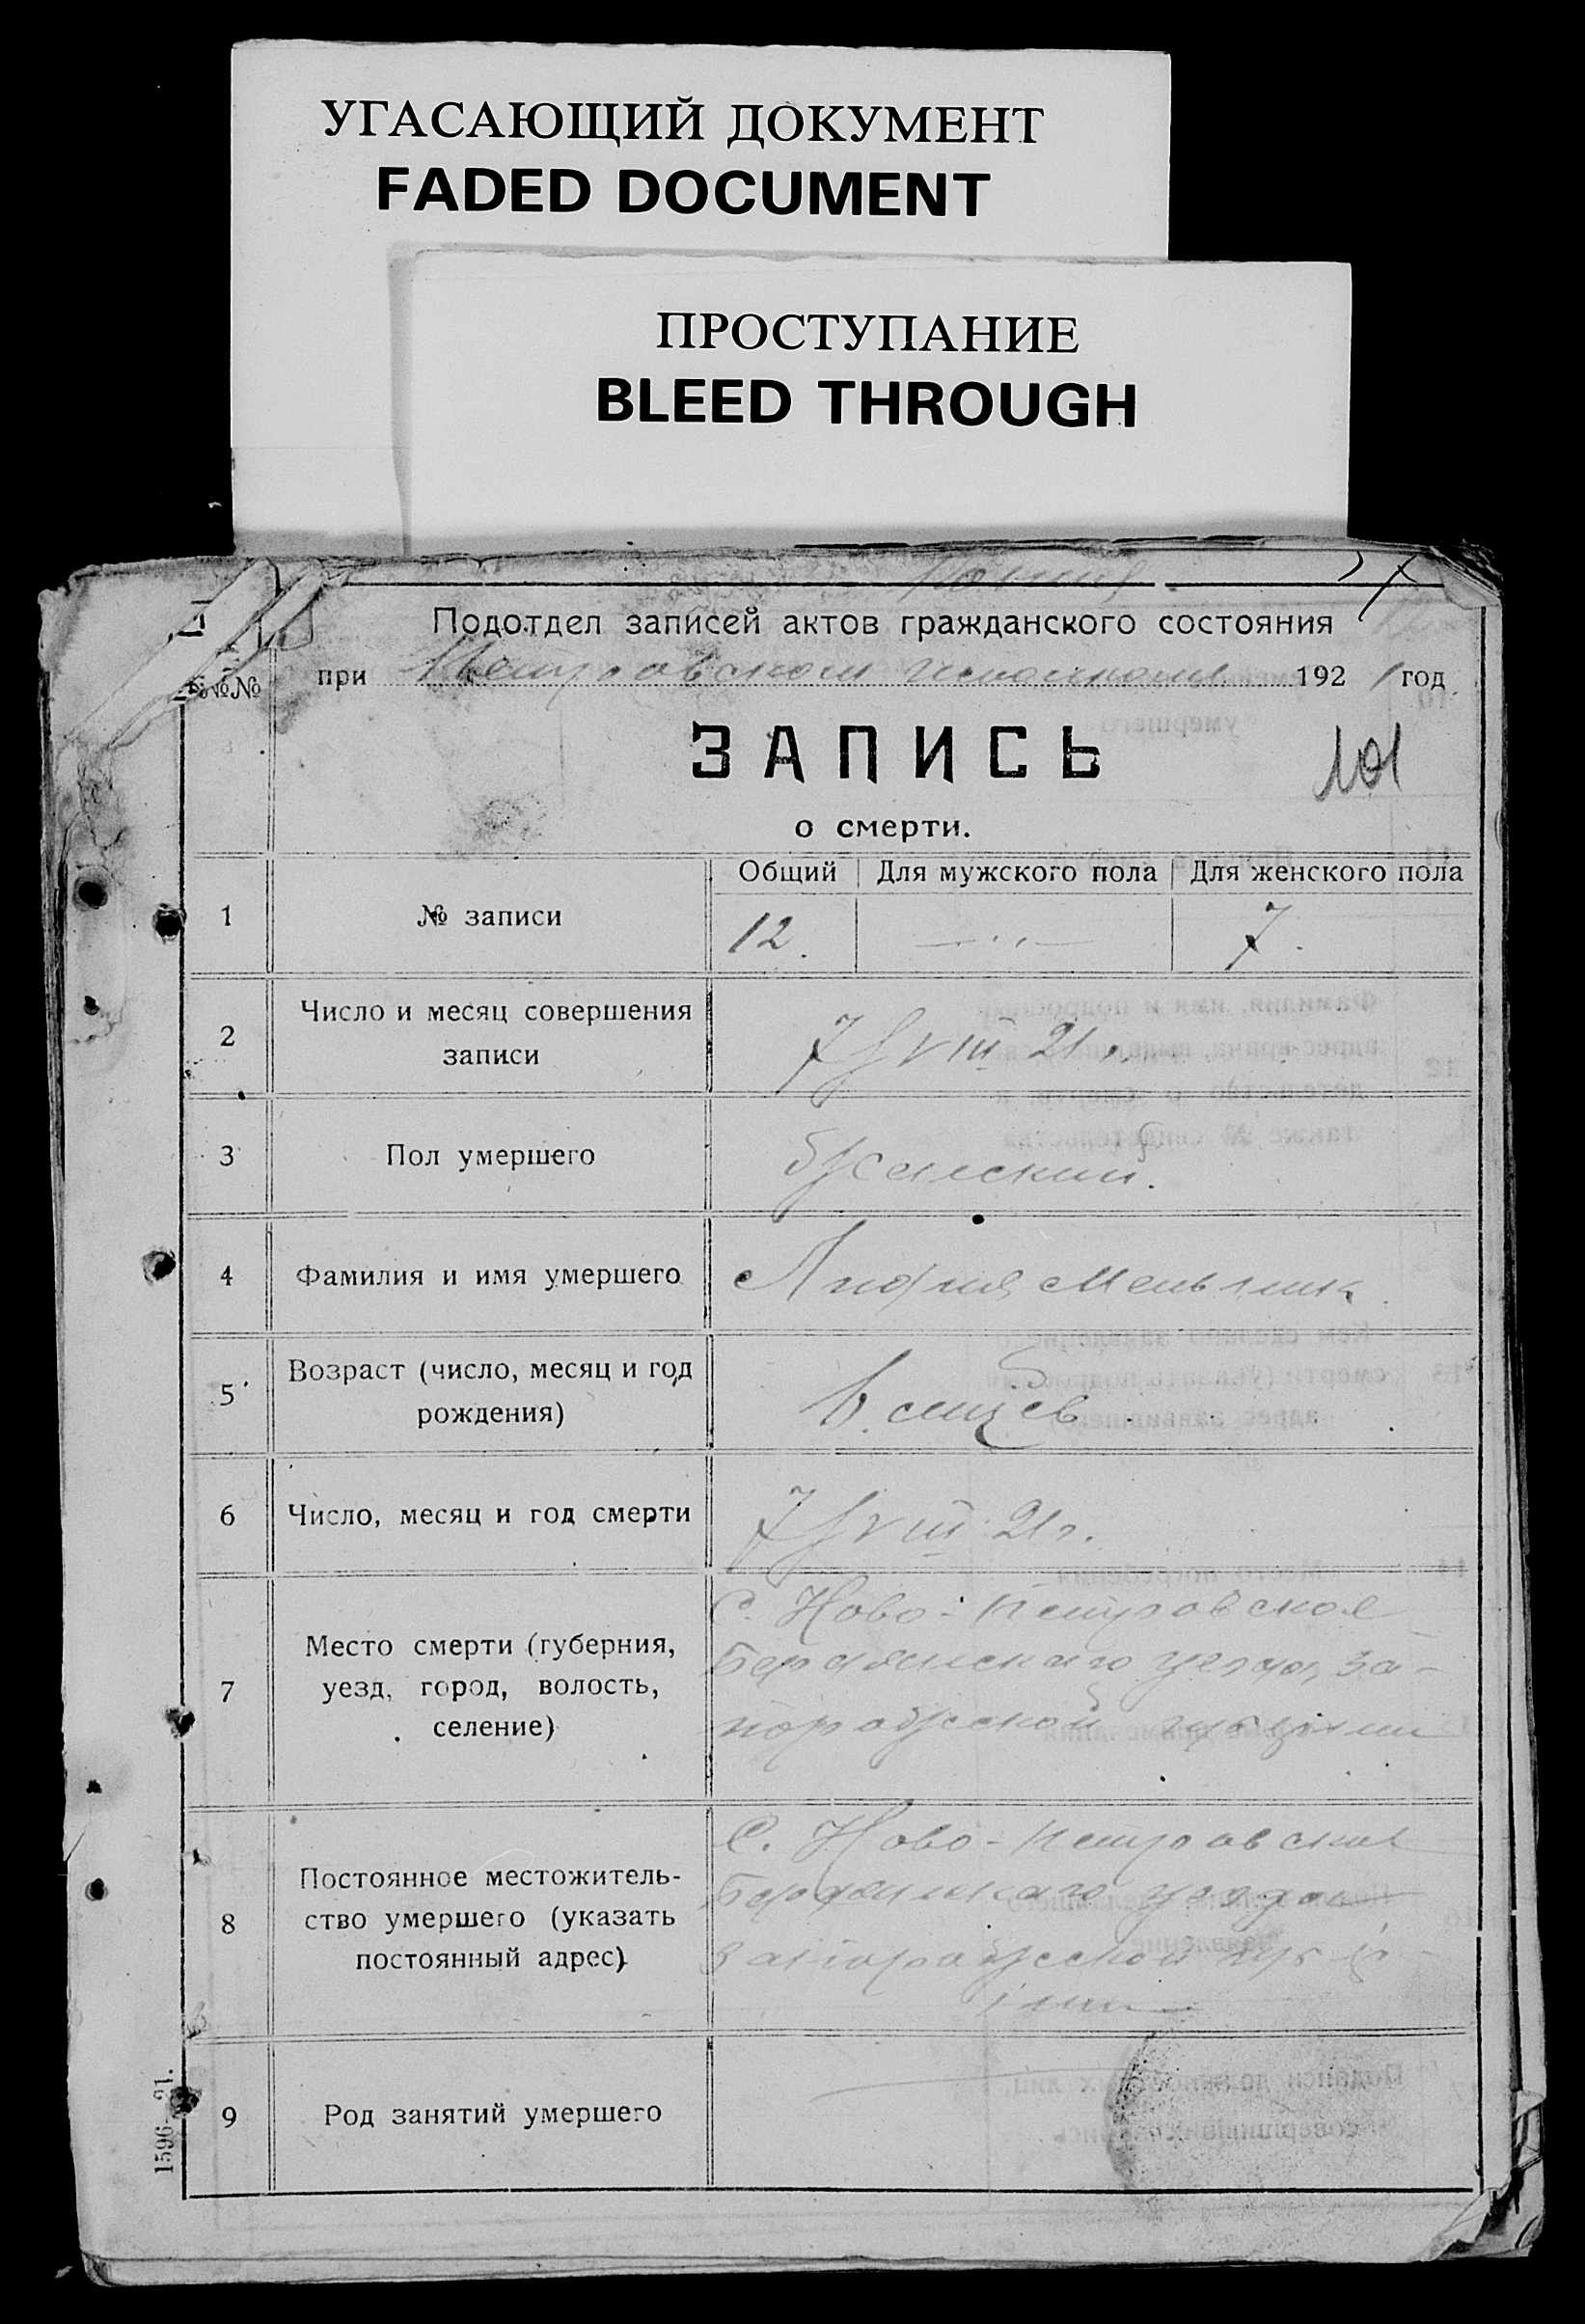 УГАСАЮЩИЙ ДОКУМЕНТ
FADED DOCUMENT
ПРОСТУПАНИЕ
BLEED THROUGH
Подотдел записей актов гражданского состояния
№№ при Петровском исполкоме 192 1 год
ЗАПИСЬ
101
о смерти.
Общий Для мужского пола Для женского пола
1 № записи 12. — ·· — 7.
2 Число и месяц совершения
записи
7/VIII 21 г.
3 Пол умершего женский.
4 Фамилия и имя умершего Мельник
5 Возраст (число, месяц и год
рождения)
6 месяцев
6 Число, месяц и год смерти 7/VIII 21 г.
7 Место смерти (губерния,
уезд, город, волость,
селение)
С. Ново-Петровское
Бердянского уезда, За-
порожской губернии
8 Постоянное местожитель-
ство умершего (указать
постоянный адрес)
С. Ново-Петровское
Бердянского уезда
Запорожской губ
9 Род занятий умершего
1596—21.